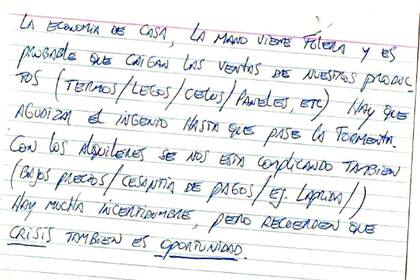 LA ECONOMIA DE CASA, LA MANO VIENE FULERA Y ES
PROBABLE QUE CAIGAN LAS VENTAS DE NUESTROS PRODUC-
TOS (TERMOS/LEGOS/CELUS/PANELES, ETC) HAY QUE
AGUDIZAR EL INGENIO HASTA QUE PASE LA TORMENTA.
CON LOS ALQUILERES SE NOS ESTA COMPLICANDO TAMBIEN
(BAJOS PRECIOS/CESANTIA DE PAGOS/EJ. LAPRIDA/)
HAY MUCHA INCERTIDUMBRE, PERO RECUERDEN QUE
CRISIS TAMBIEN ES OPORTUNIDAD.